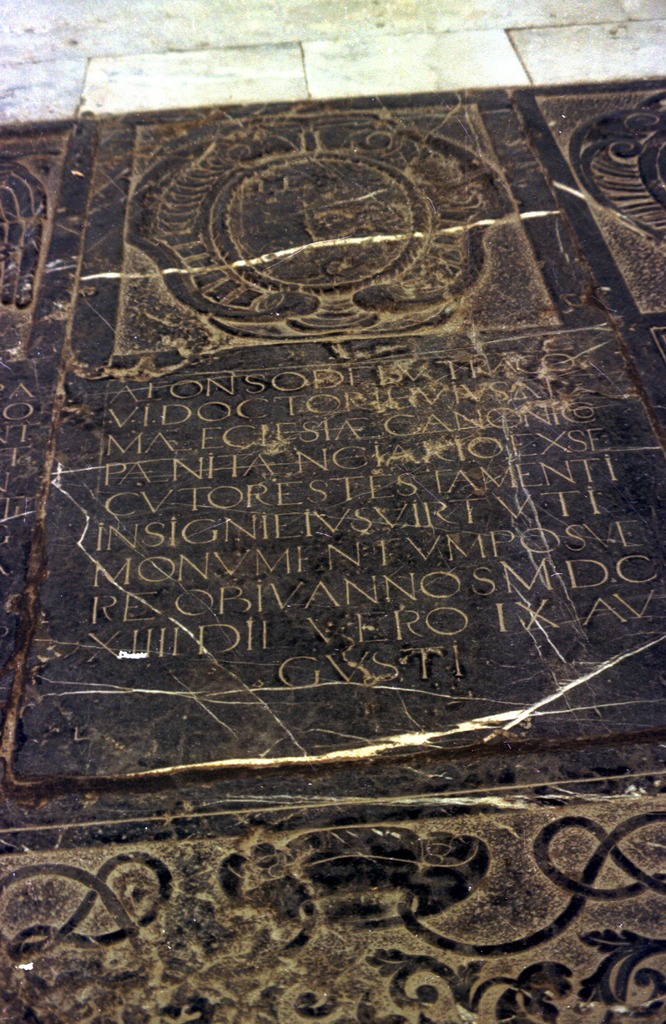 ALFONSO DE BVITRAGO
V.I DOCTORI HVIVS AL
MÆ ECCLESIÆ CANONICO
PÆNHÆNGIARIO EXSE
CVTORES TESTAMENTI
INSIGNI EIVS VIRTVTI
MONVMENTVM POSVE
RE OBIV ANNOS M.D.C
XIIII DII VERO IX AV
GVSTI